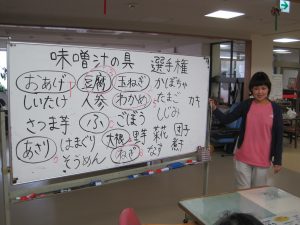 味噌汁の具 選手権
おあげ 豆腐 玉ねぎ かぼちゃ
しいたけ 人参 わかめ たまご カキ
さつま芋 ふ ごぼう しじみ
あさり はまぐり 大根 里芋 菜花 団子
そうめん ねぎ なす